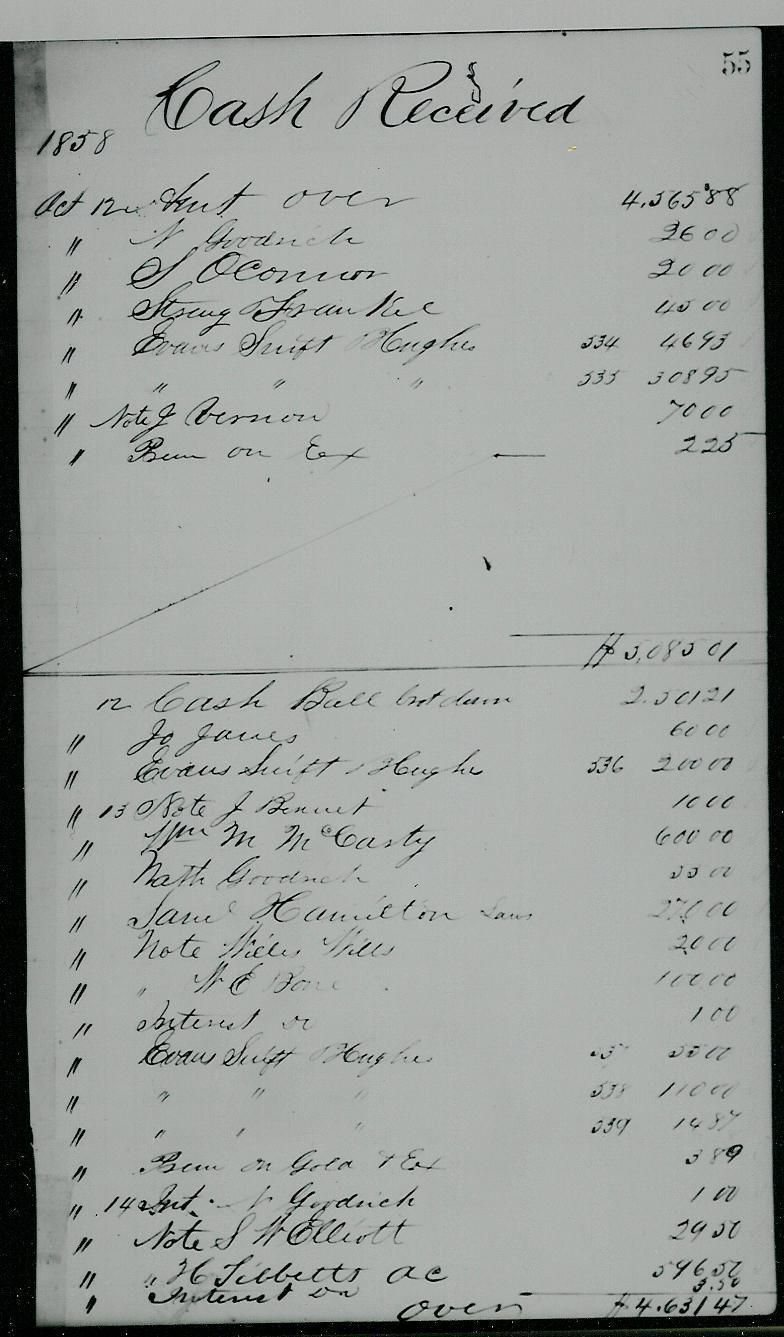 55
Cash Received
1858
Oct 12 Amt over 4.565 88
" N Goodrich 26 00
" S OConnor 20 00
" Strang & Frankel 45 00
" Evans Swift & Hughes 534 46 93
" " " " 535 308 95
" Note J Vernon 70 00
" Prem on Ex 2 25
$ 5,085 01
12 Cash Ball brot down 2.501 21
" Jo Janes 60 00
" Evans Swift & Hughes 536 200 00
" 13 Note J Bennet 10 00
" Wm M McCarty 600 00
" Nath Goodrich 55 00
" Saml Hamilton 270 00
" Note Willis Wills 20 00
" " W E Bone 100 00
" Interest Do 1 00
" Evans Swift & Hughes 537 55 00
" " " " 538 110 00
" " " " 539 14 87
" Prem on Gold & Ex 3 89
" 14 Int. N Goodrich 1 00
" Note S W Elliott 29 50
" " H Tibbetts ac 596 50
" Interest Do 3.50
over $ 4.631 47